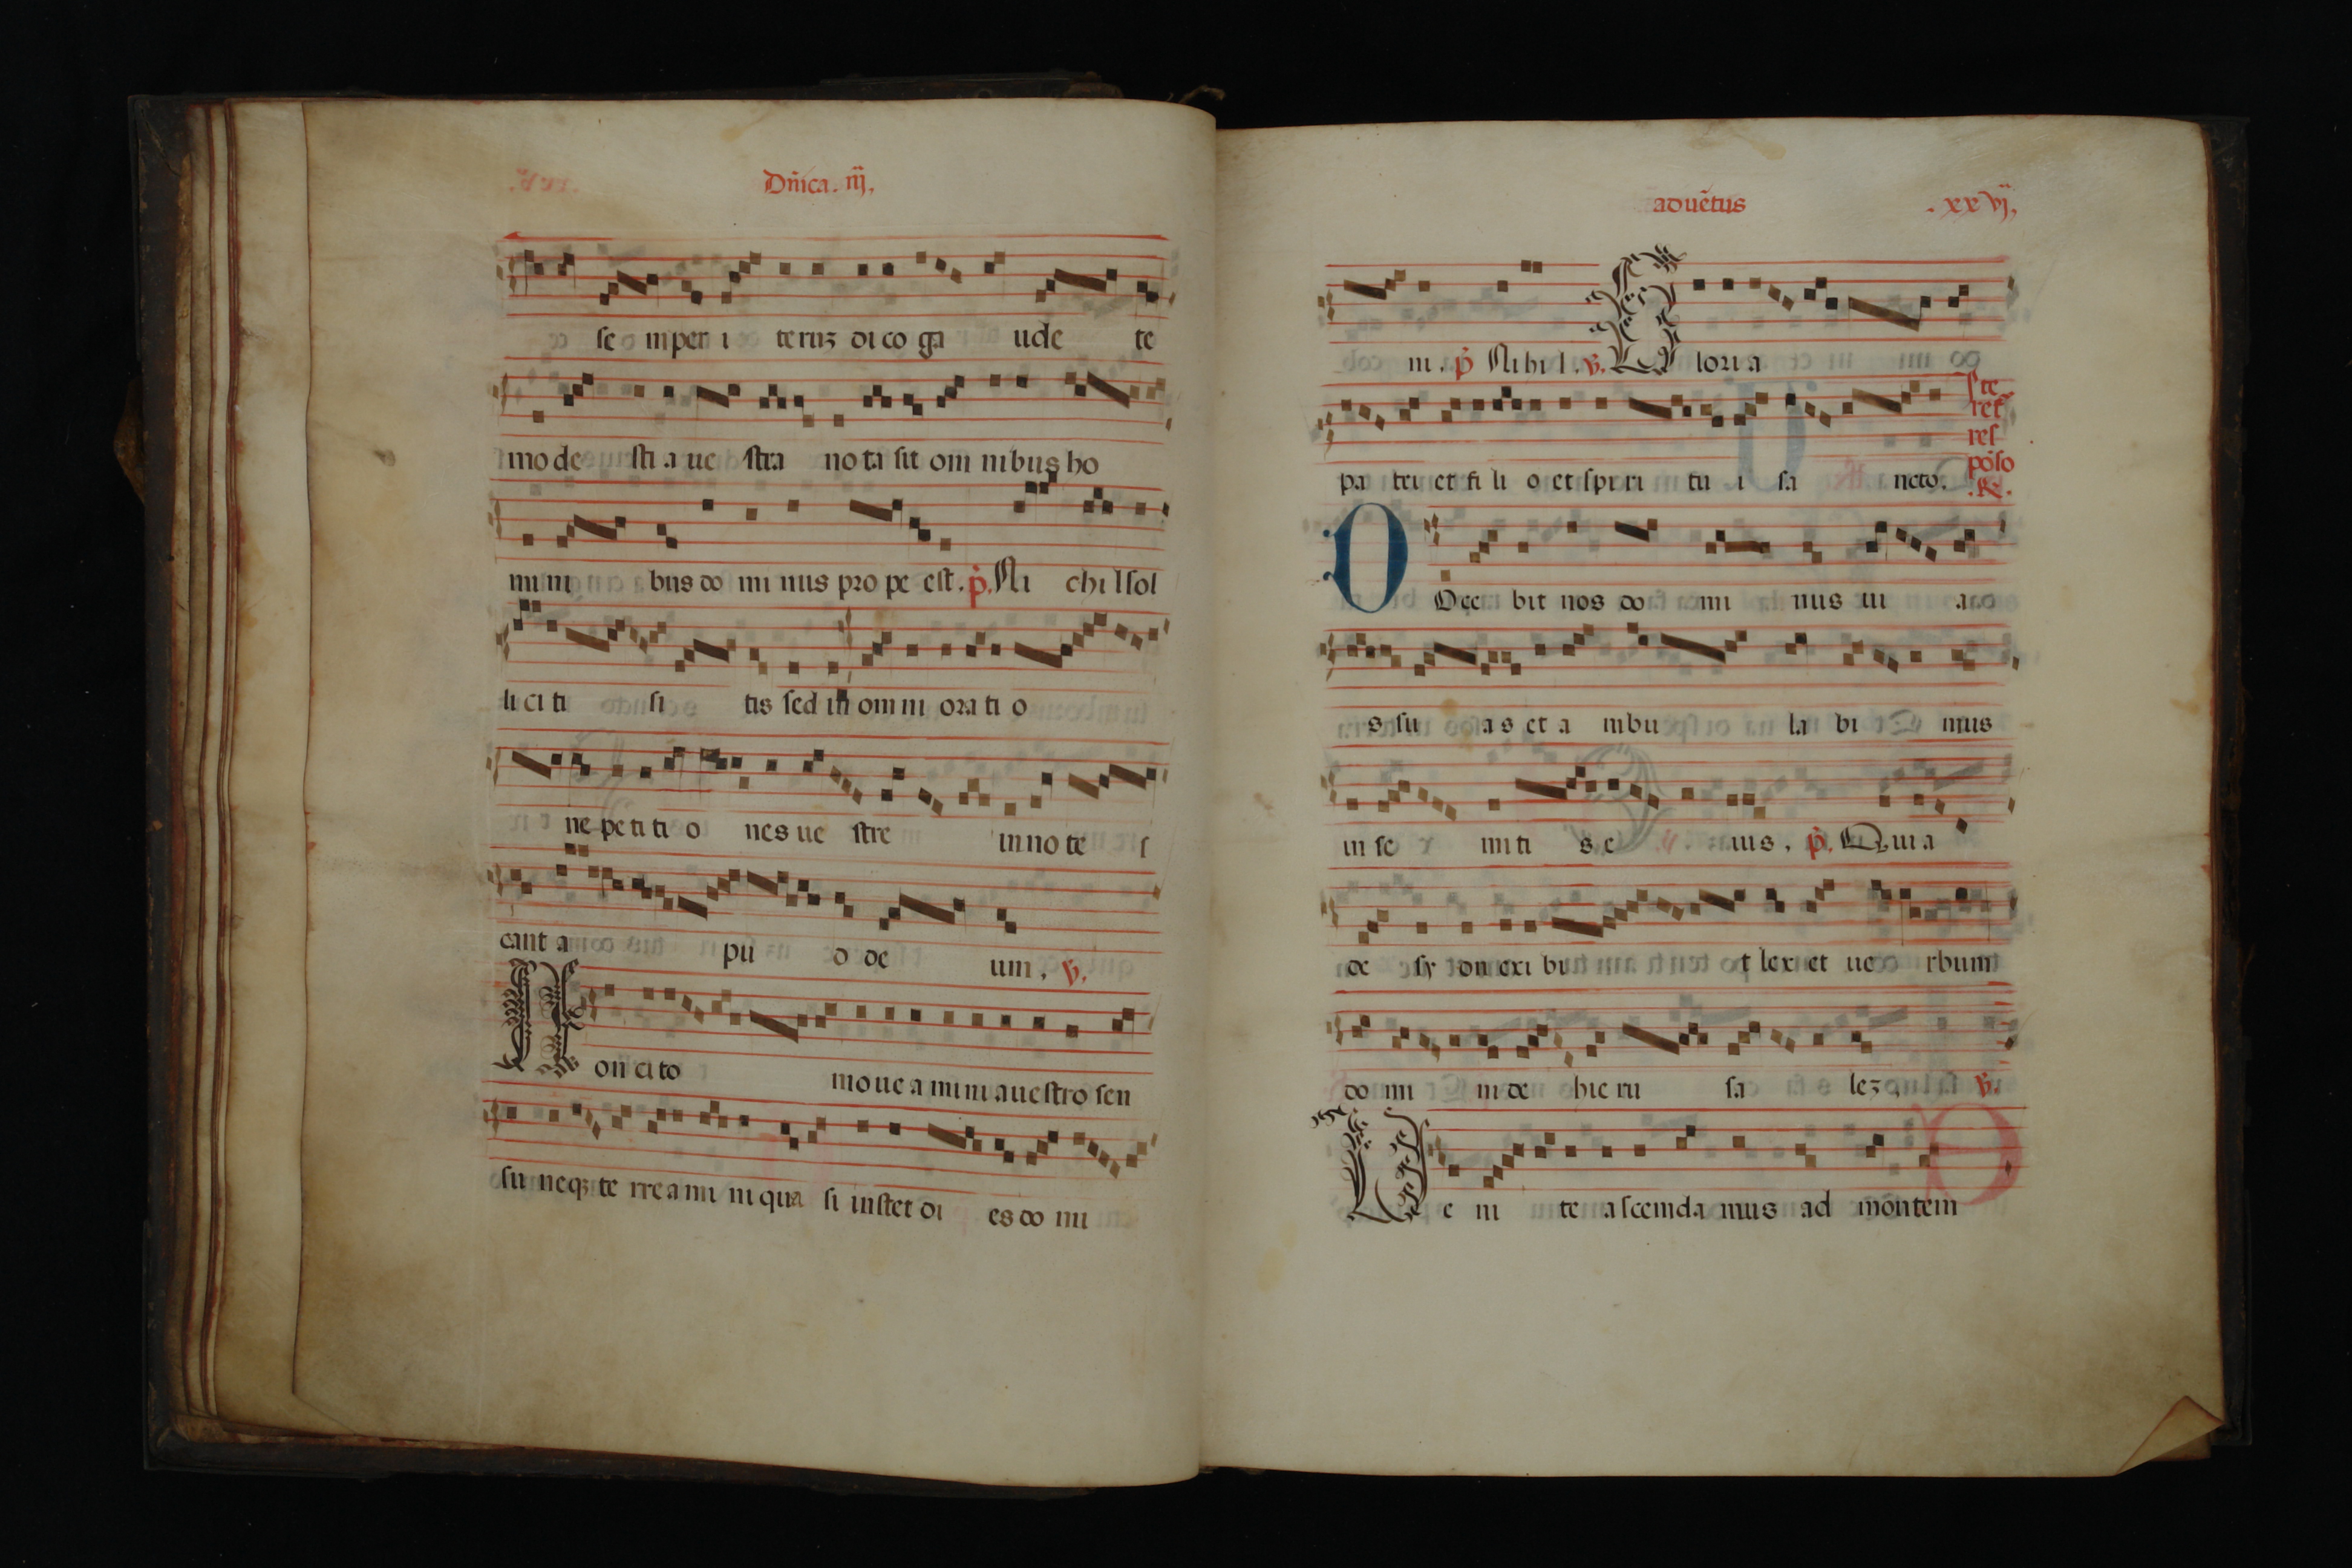 Dñica. iij,
se mper i teruz dico ga ude te
mode sti a ue stra nota sit omnibus ho
mini bus do minus prope est. p. Ni chil sol
liciti si tis sed in omni oratio
ne petitio nes ue stre innote s
cant a pu d de um. v.
on cito moueamini a uestro sen
su neqz te rreamini qua si instet di es do mi
aduẽtus .xxvj,
ni. p Nihil. v. Gloria
pa tri et fili o et spiri tu i sa ncto. Iste
ret
res
põso
.R.
Docebit nos do mi nus ui as
s su as et a mbu la bi mus
in se miti s e ius. p. Quia
de sy on exi bi t lex et ue rbum
do mi ni de hieru sa lez. v.
Ve ni te ascenda mus ad montem